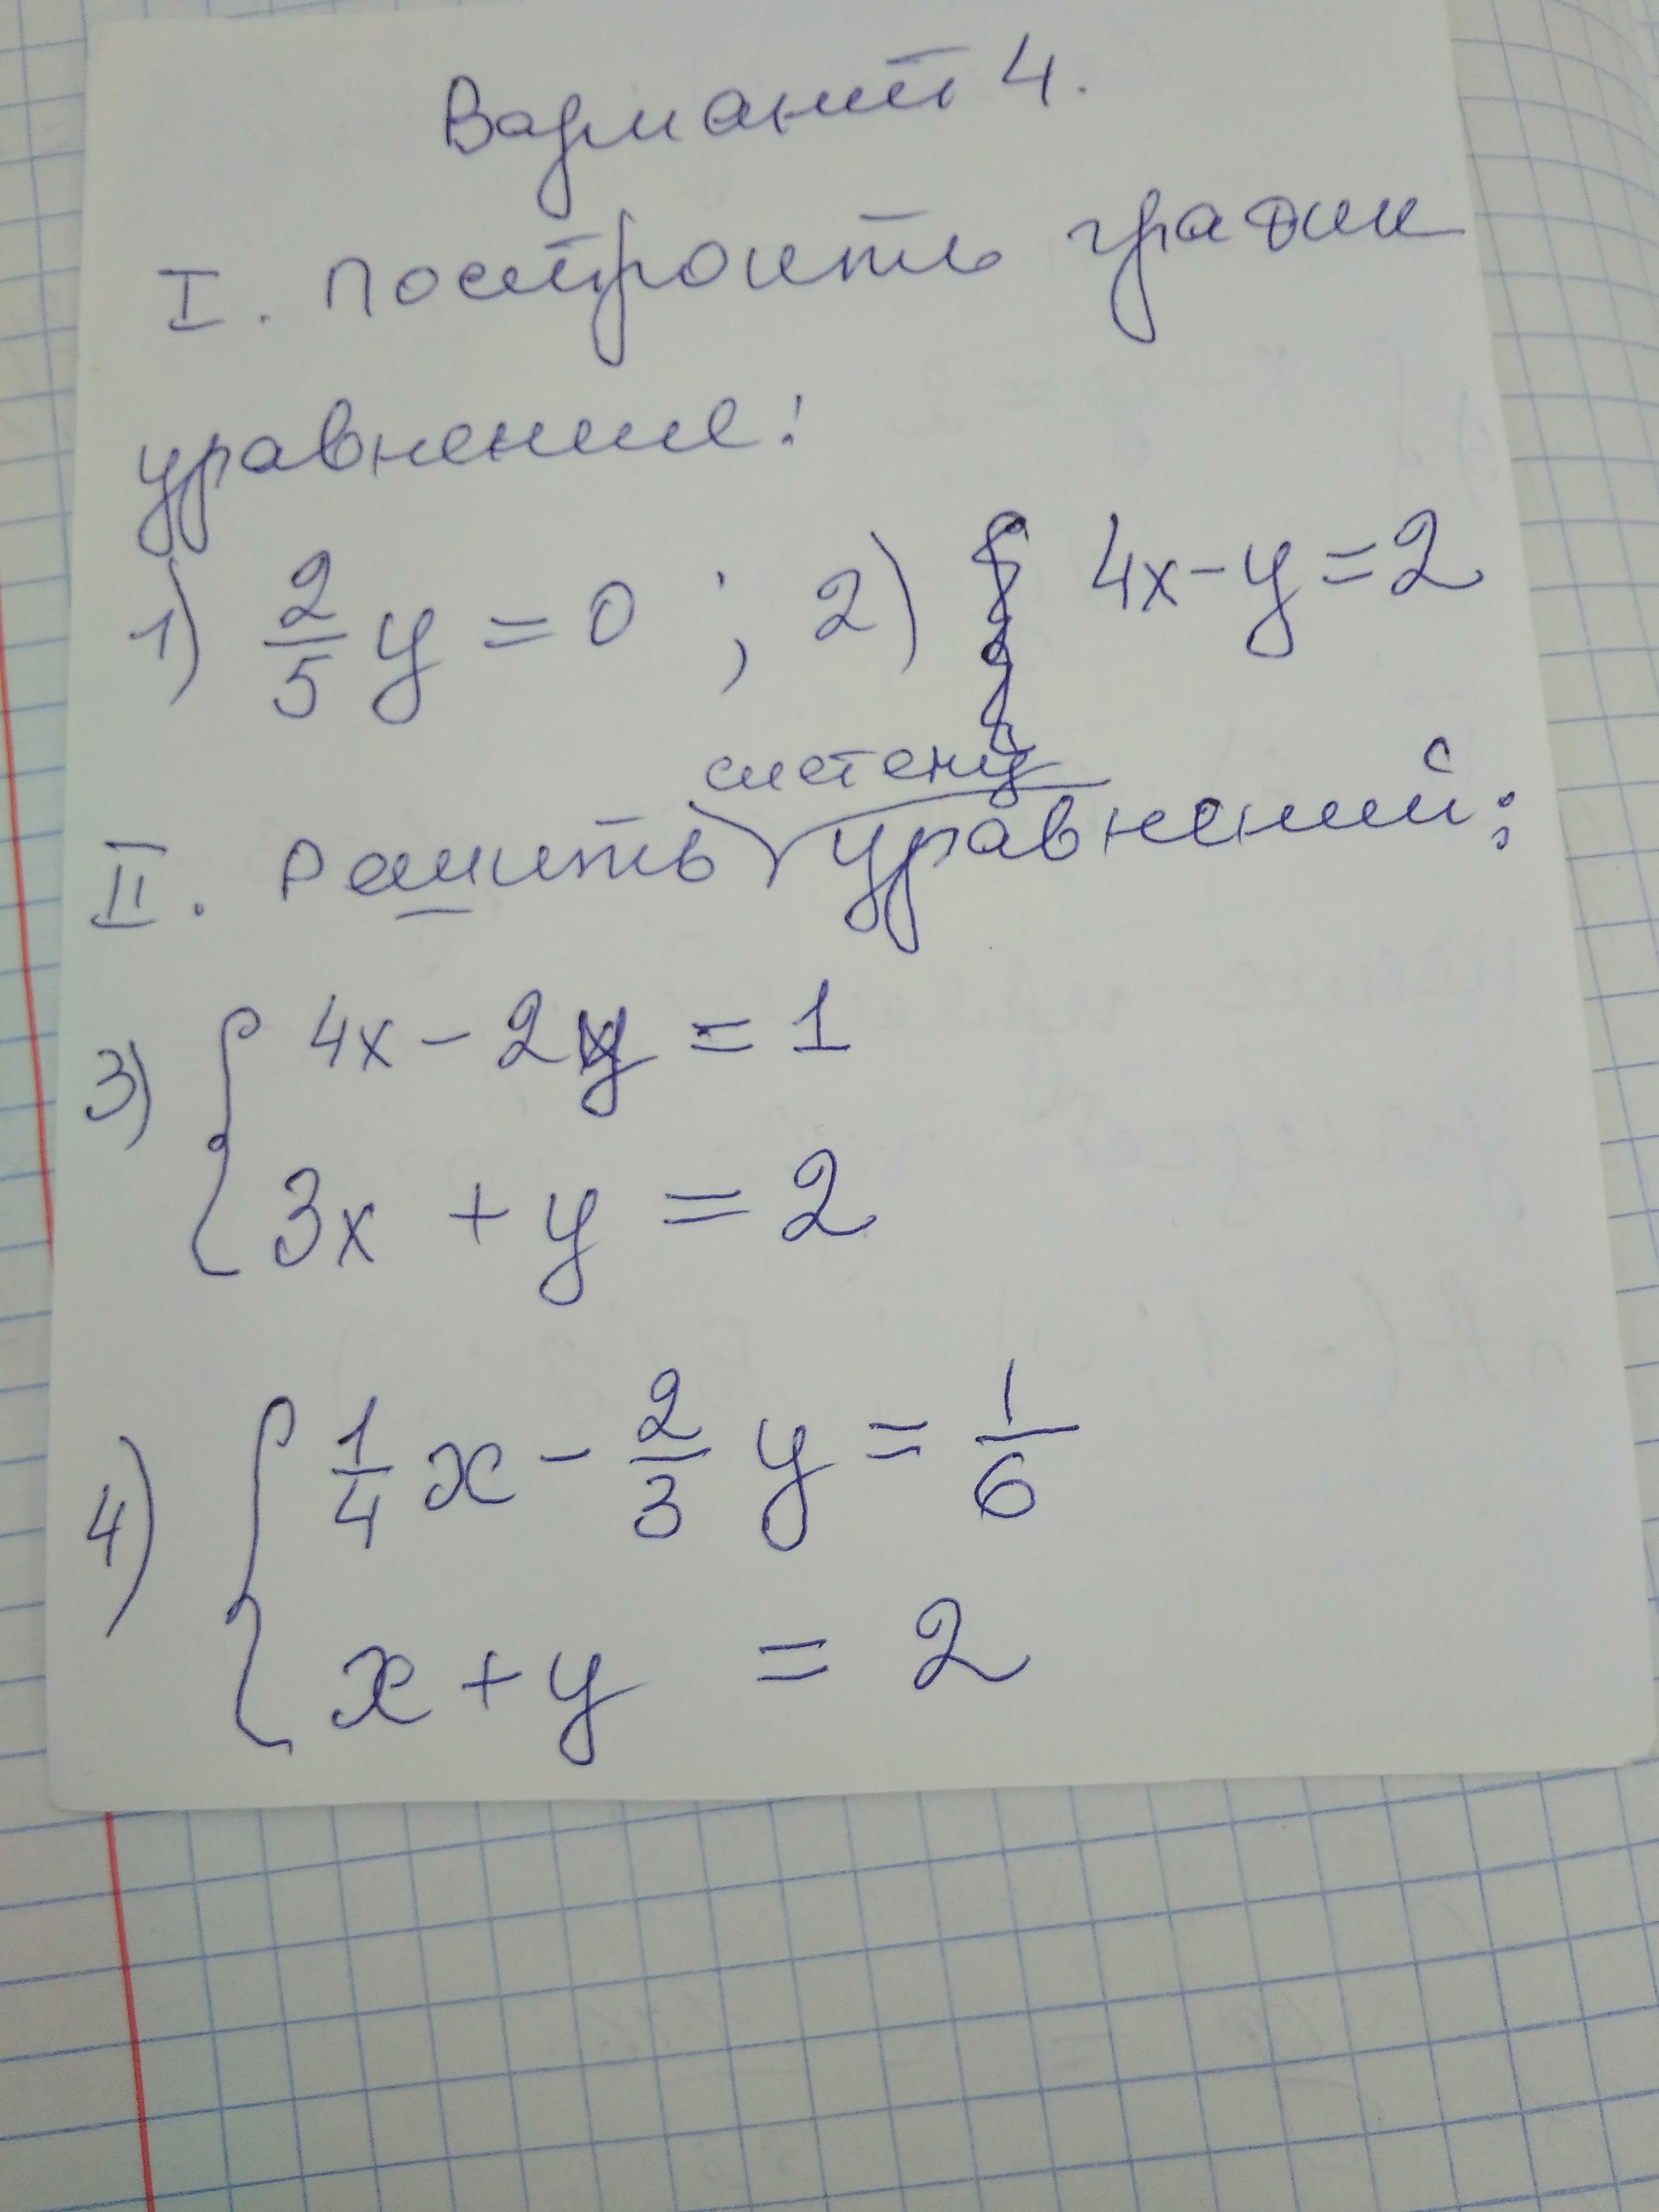 Вариант 4.
I. Построить график
уравнение:
1) 2/5 y = 0 ; 2) 4x - y = 2
систему
II. Решить уравнений:
3) { 4x - 2y = 1
3x + y = 2
4) { 1/4 x - 2/3 y = 1/6
x + y = 2